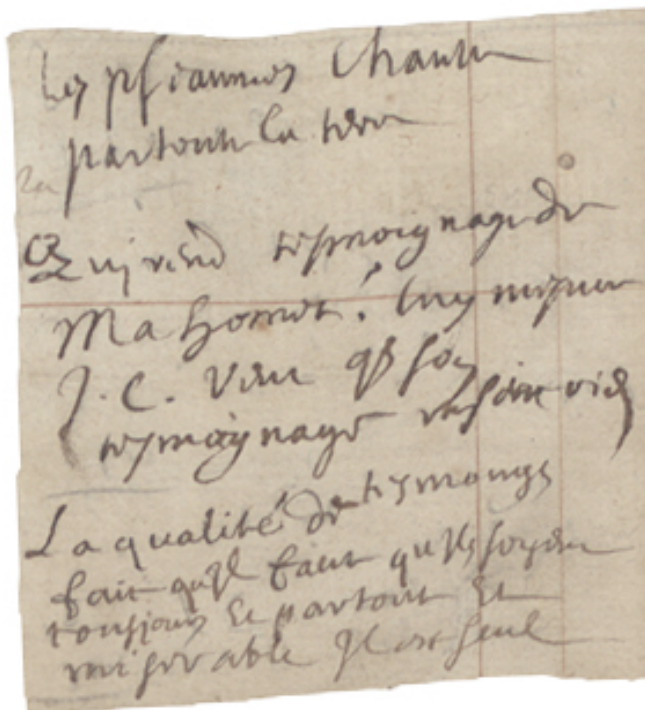 les pseaumes chantes
par toute la terre
Qui rend tesmoignage de
Mahomet? luy mesme
J. C. veut que son
tesmoignage ne soit rien
La qualité de tesmoings
fait qu'il faut qu'ils soyent
tousjours et partout et
miserable Il est seul